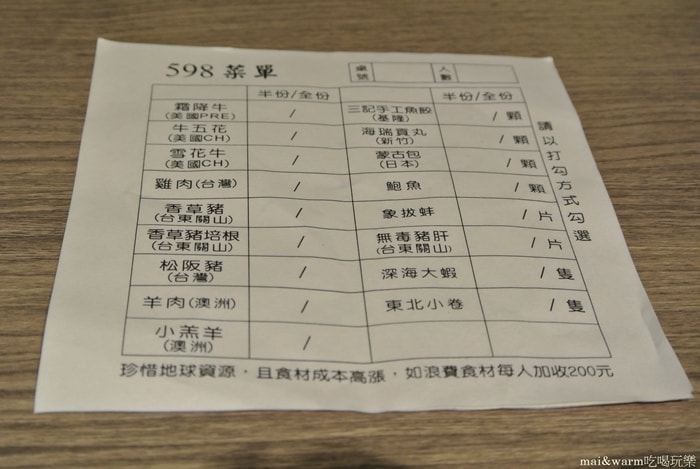 598 菜單
桌號
人數
半份/全份
半份/全份
霜降牛
(美國PRE)
/
三記手工魚餃
(基隆)
/ 顆
牛五花
(美國CH)
/
海瑞貢丸
(新竹)
/ 顆
雪花牛
(美國CH)
/
蒙古包
(日本)
/ 顆
雞肉(台灣)
/
鮑魚
/ 顆
香草豬
(台東關山)
/
象拔蚌
/ 片
香草豬培根
(台東關山)
/
無毒豬肝
(台東關山)
/ 片
松阪豬
(台灣)
/
深海大蝦
/ 隻
羊肉(澳洲)
/
東北小卷
/ 隻
小羔羊
(澳洲)
/
請以打勾方式勾選
珍惜地球資源，且食材成本高漲，如浪費食材每人加收200元
mai&warm吃喝玩樂